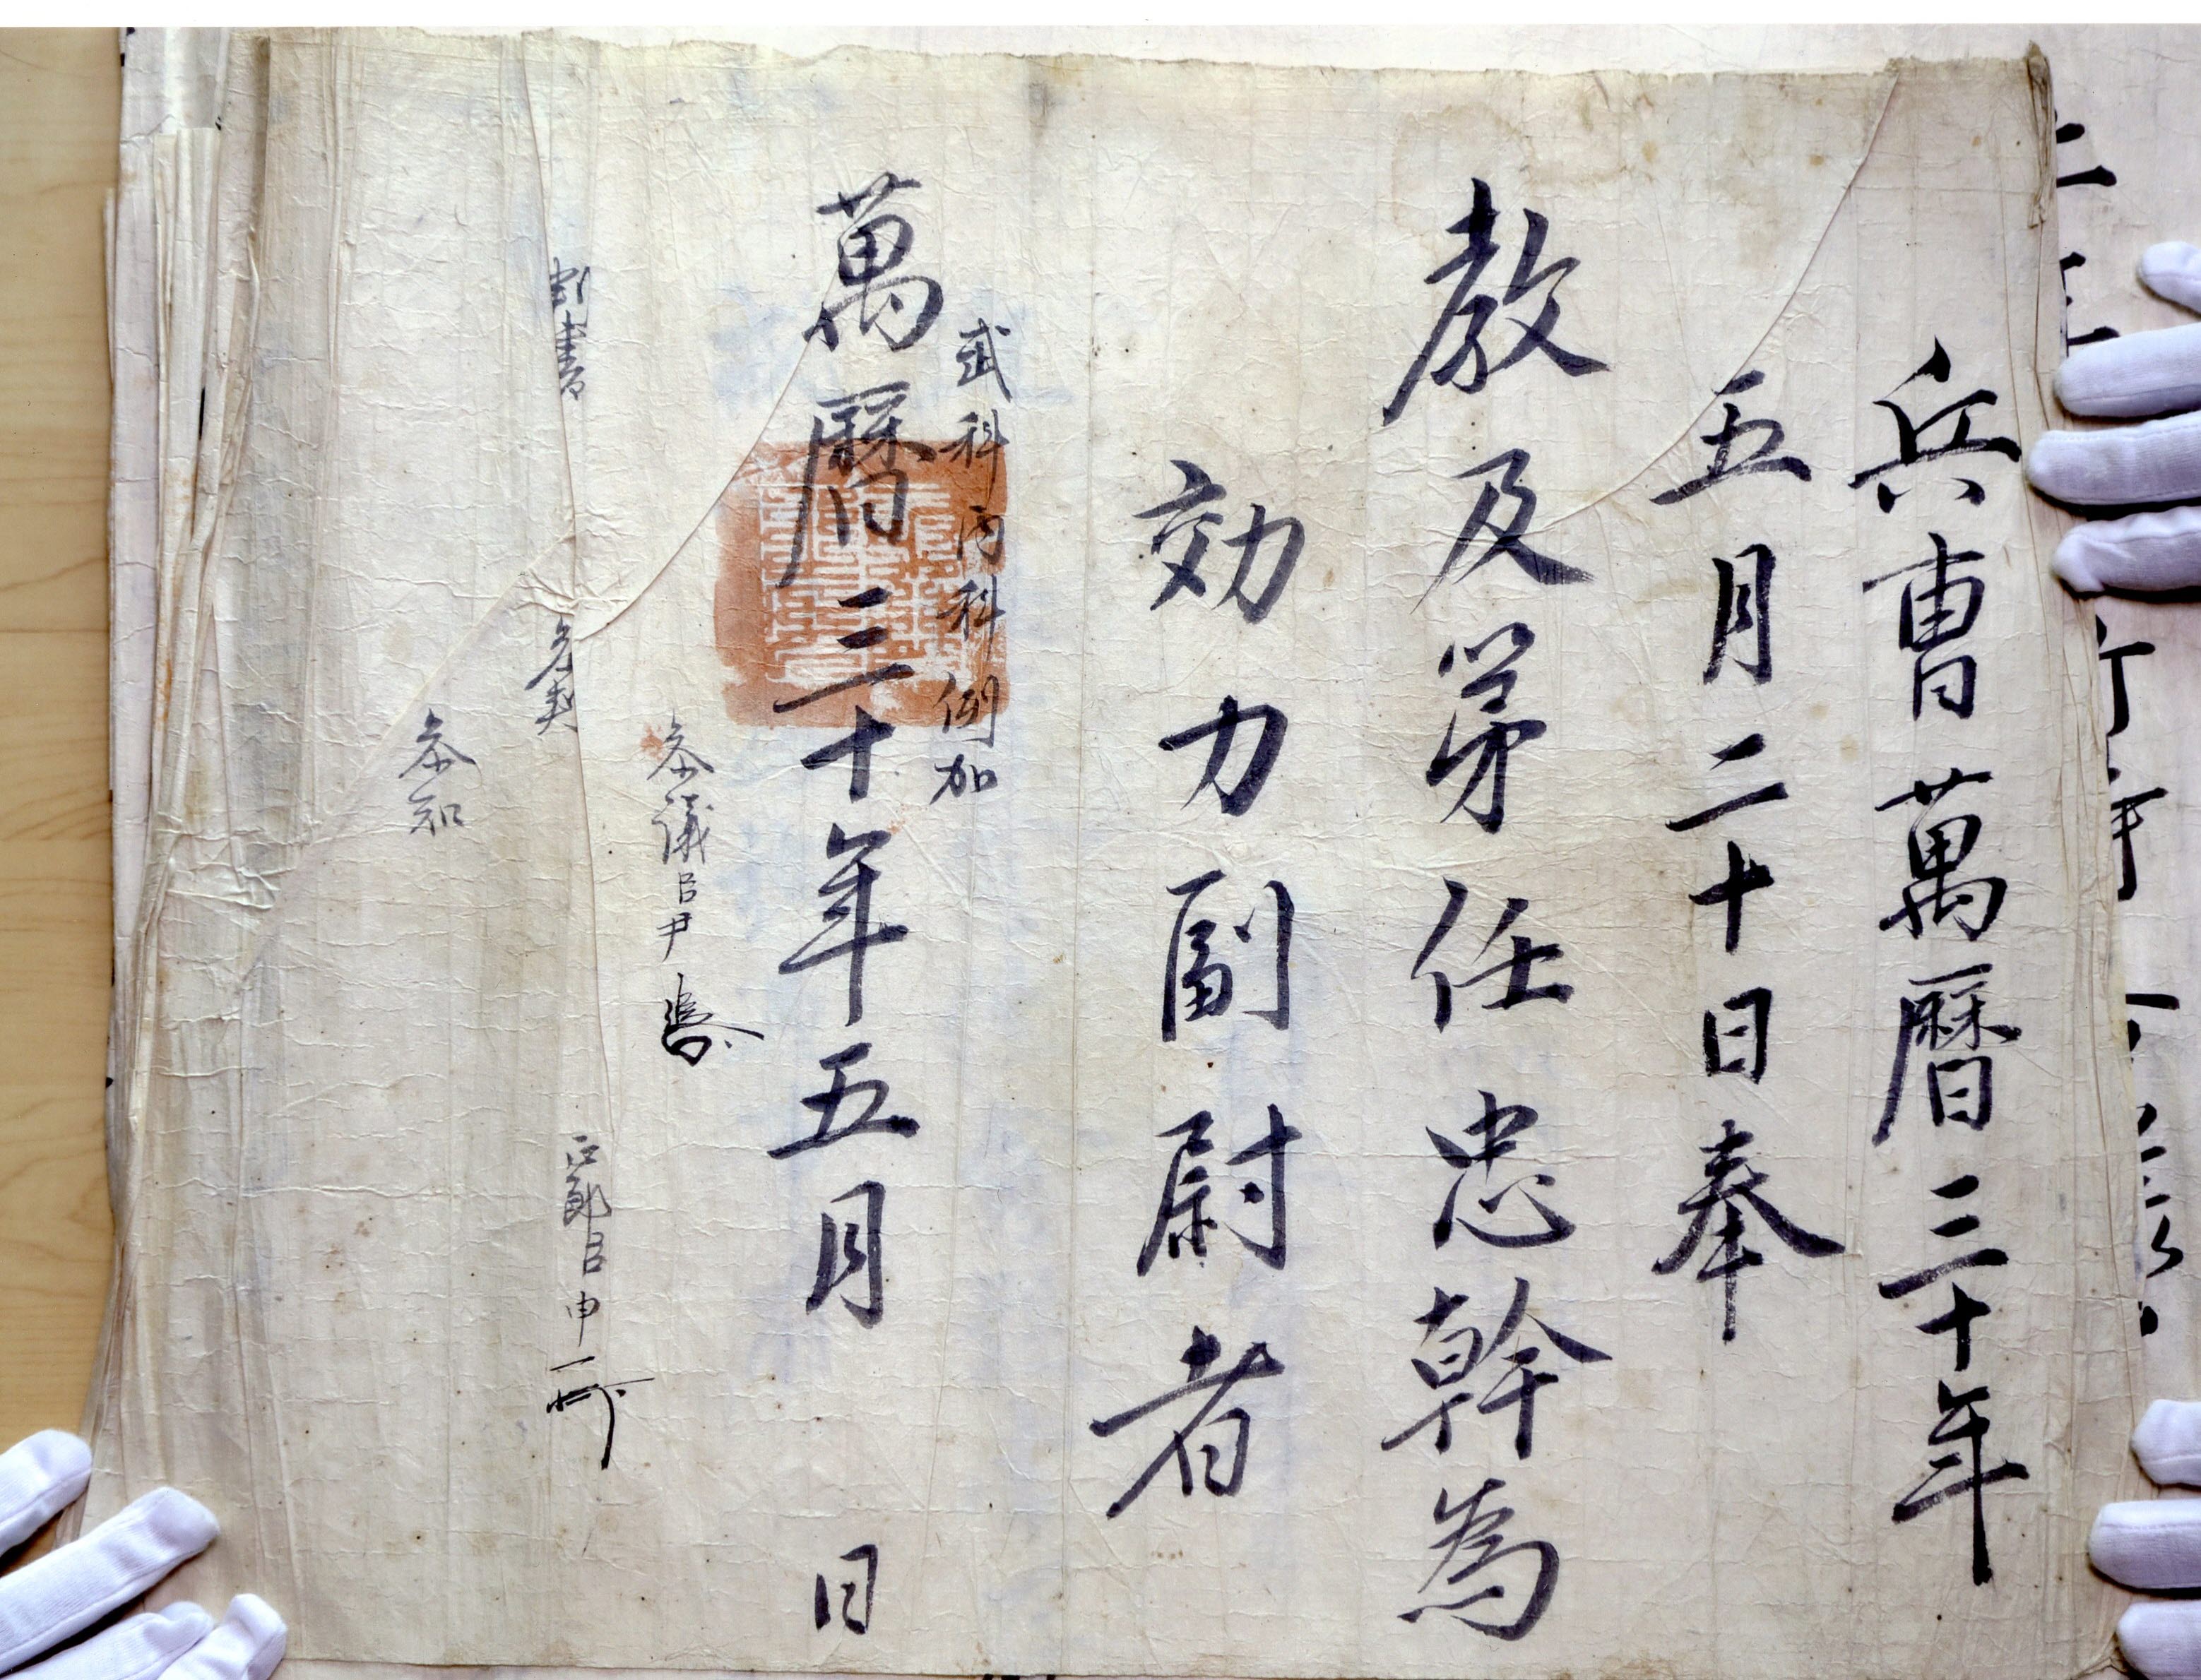 兵曹萬曆三十年
五月二十日奉
教及第任忠幹為
効力副尉者
武科內科例加
萬曆三十年五月 日
參議臣尹
正郎臣申
判書
參判
參知